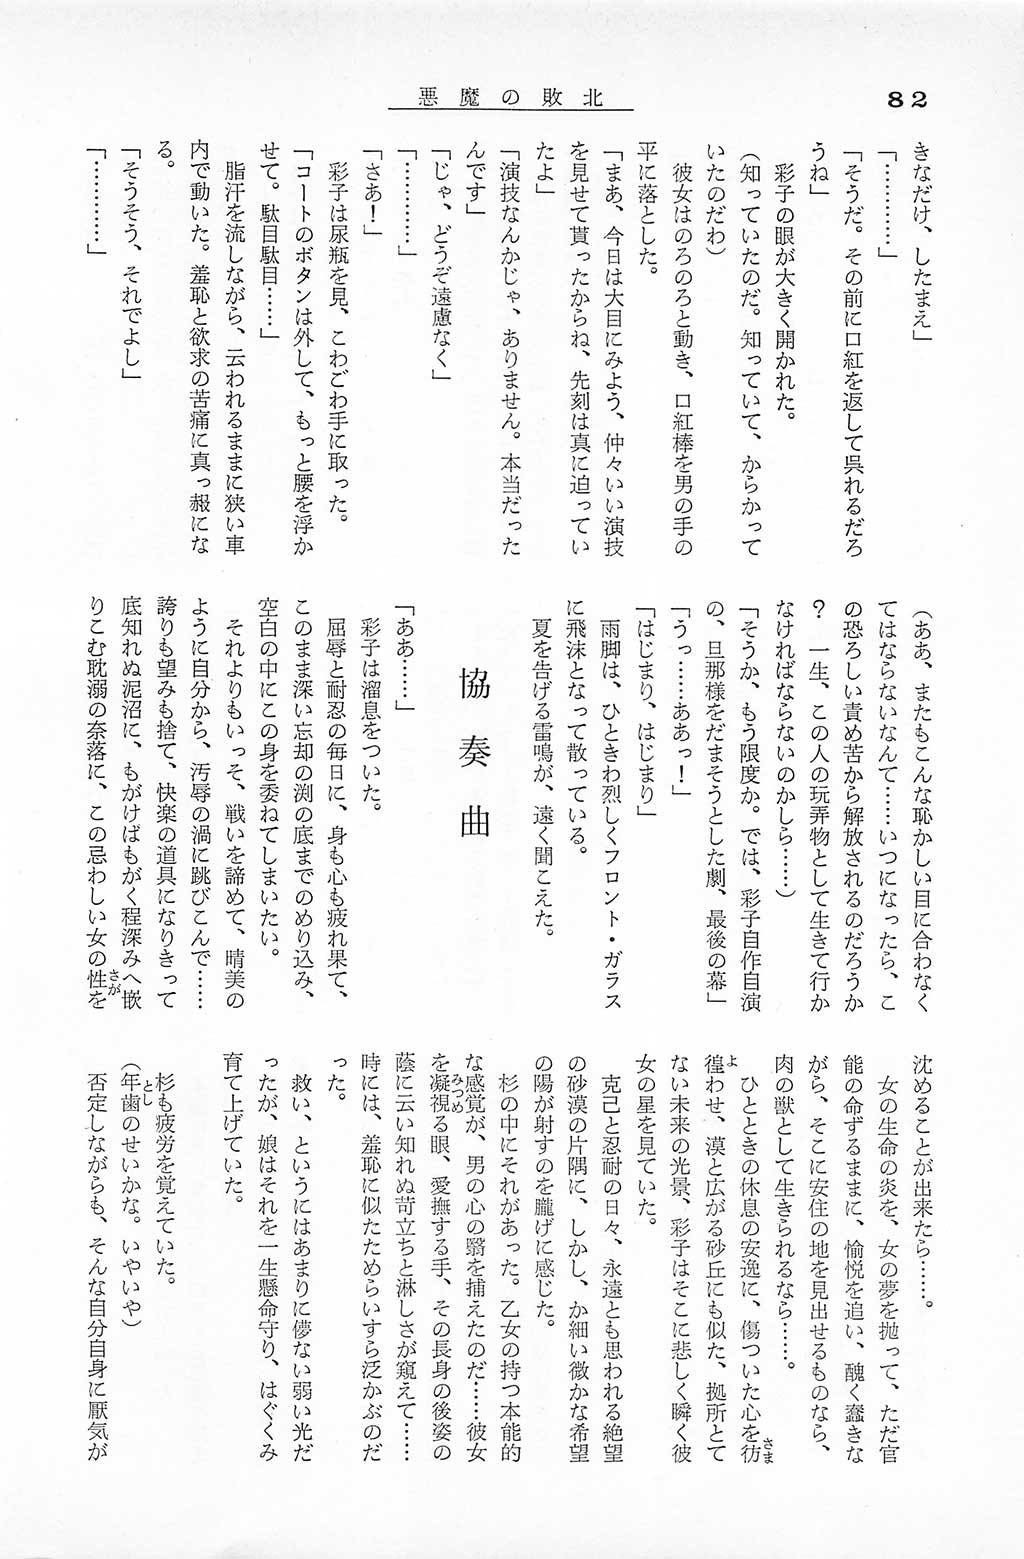 82
悪魔の敗北
きなだけ、したまえ」
「…………」
「そうだ。その前に口紅を返して呉れるだろ
うね」
彩子の眼が大きく開かれた。
(知っていたのだ。知っていて、からかって
いたのだわ)
彼女はのろのろと動き、口紅棒を男の手の
平に落とした。
「まあ、今日は大目にみよう、仲々いい演技
を見せて貰ったからね、先刻は真に迫ってい
たよ」
「演技なんかじゃ、ありません。本当だった
んです」
「じゃ、どうぞ遠慮なく」
「…………」
「さあ!」
彩子は尿瓶を見、こわごわ手に取った。
「コートのボタンは外して、もっと腰を浮か
せて。駄目駄目……」
脂汗を流しながら、云われるままに狭い車
内で動いた。羞恥と欲求の苦痛に真っ赧にな
る。
「そうそう、それでよし」
「…………」
(ああ、またもこんな恥かしい目に合わなく
てはならないなんて……いつになったら、こ
の恐ろしい責め苦から解放されるのだろうか
? 一生、この人の玩弄物として生きて行か
なければならないのかしら……)
「そうか、もう限度か。では、彩子自作自演
の、旦那様をだまそうとした劇、最後の幕」
「うっ……ああっ!」
「はじまり、はじまり」
雨脚は、ひときわ烈しくフロント・ガラス
に飛沫となって散っている。
夏を告げる雷鳴が、遠く聞こえた。
協奏曲
「ああ……」
彩子は溜息をついた。
屈辱と耐忍の毎日に、身も心も疲れ果て、
このまま深い忘却の渕の底までのめり込み、
空白の中にこの身を委ねてしまいたい。
それよりもいっそ、戦いを諦めて、晴美の
ように自分から、汚辱の渦に跳びこんで……
誇りも望みも捨て、快楽の道具になりきって
底知れぬ泥沼に、もがけばもがく程深みへ嵌
りこむ耽溺の奈落に、この忌わしい女の性さがを
沈めることが出来たら……。
女の生命の炎を、女の夢を抛って、ただ官
能の命ずるままに、愉悦を追い、醜く蠢きな
がら、そこに安住の地を見出せるものなら、
肉の獣として生きられるなら……。
ひとときの休息の安逸に、傷ついた心を彷さま
徨よわせ、漠と広がる砂丘にも似た、拠所とて
ない未来の光景、彩子はそこに悲しく瞬く彼
女の星を見ていた。
克己と忍耐の日々、永遠とも思われる絶望
の砂漠の片隅に、しかし、か細い微かな希望
の陽が射すのを朧げに感じた。
杉の中にそれがあった。乙女の持つ本能的
な感覚が、男の心の翳を捕えたのだ……彼女
を凝視みつめる眼、愛撫する手、その長身の後姿の
蔭に云い知れぬ苛立ちと淋しさが窺えて……
時には、羞恥に似たためらいすら泛かぶのだ
った。
救い、というにはあまりに儚ない弱い光だ
ったが、娘はそれを一生懸命守り、はぐくみ
育て上げていた。
杉も疲労を覚えていた。
(年歯としのせいかな。いやいや)
否定しながらも、そんな自分自身に厭気が